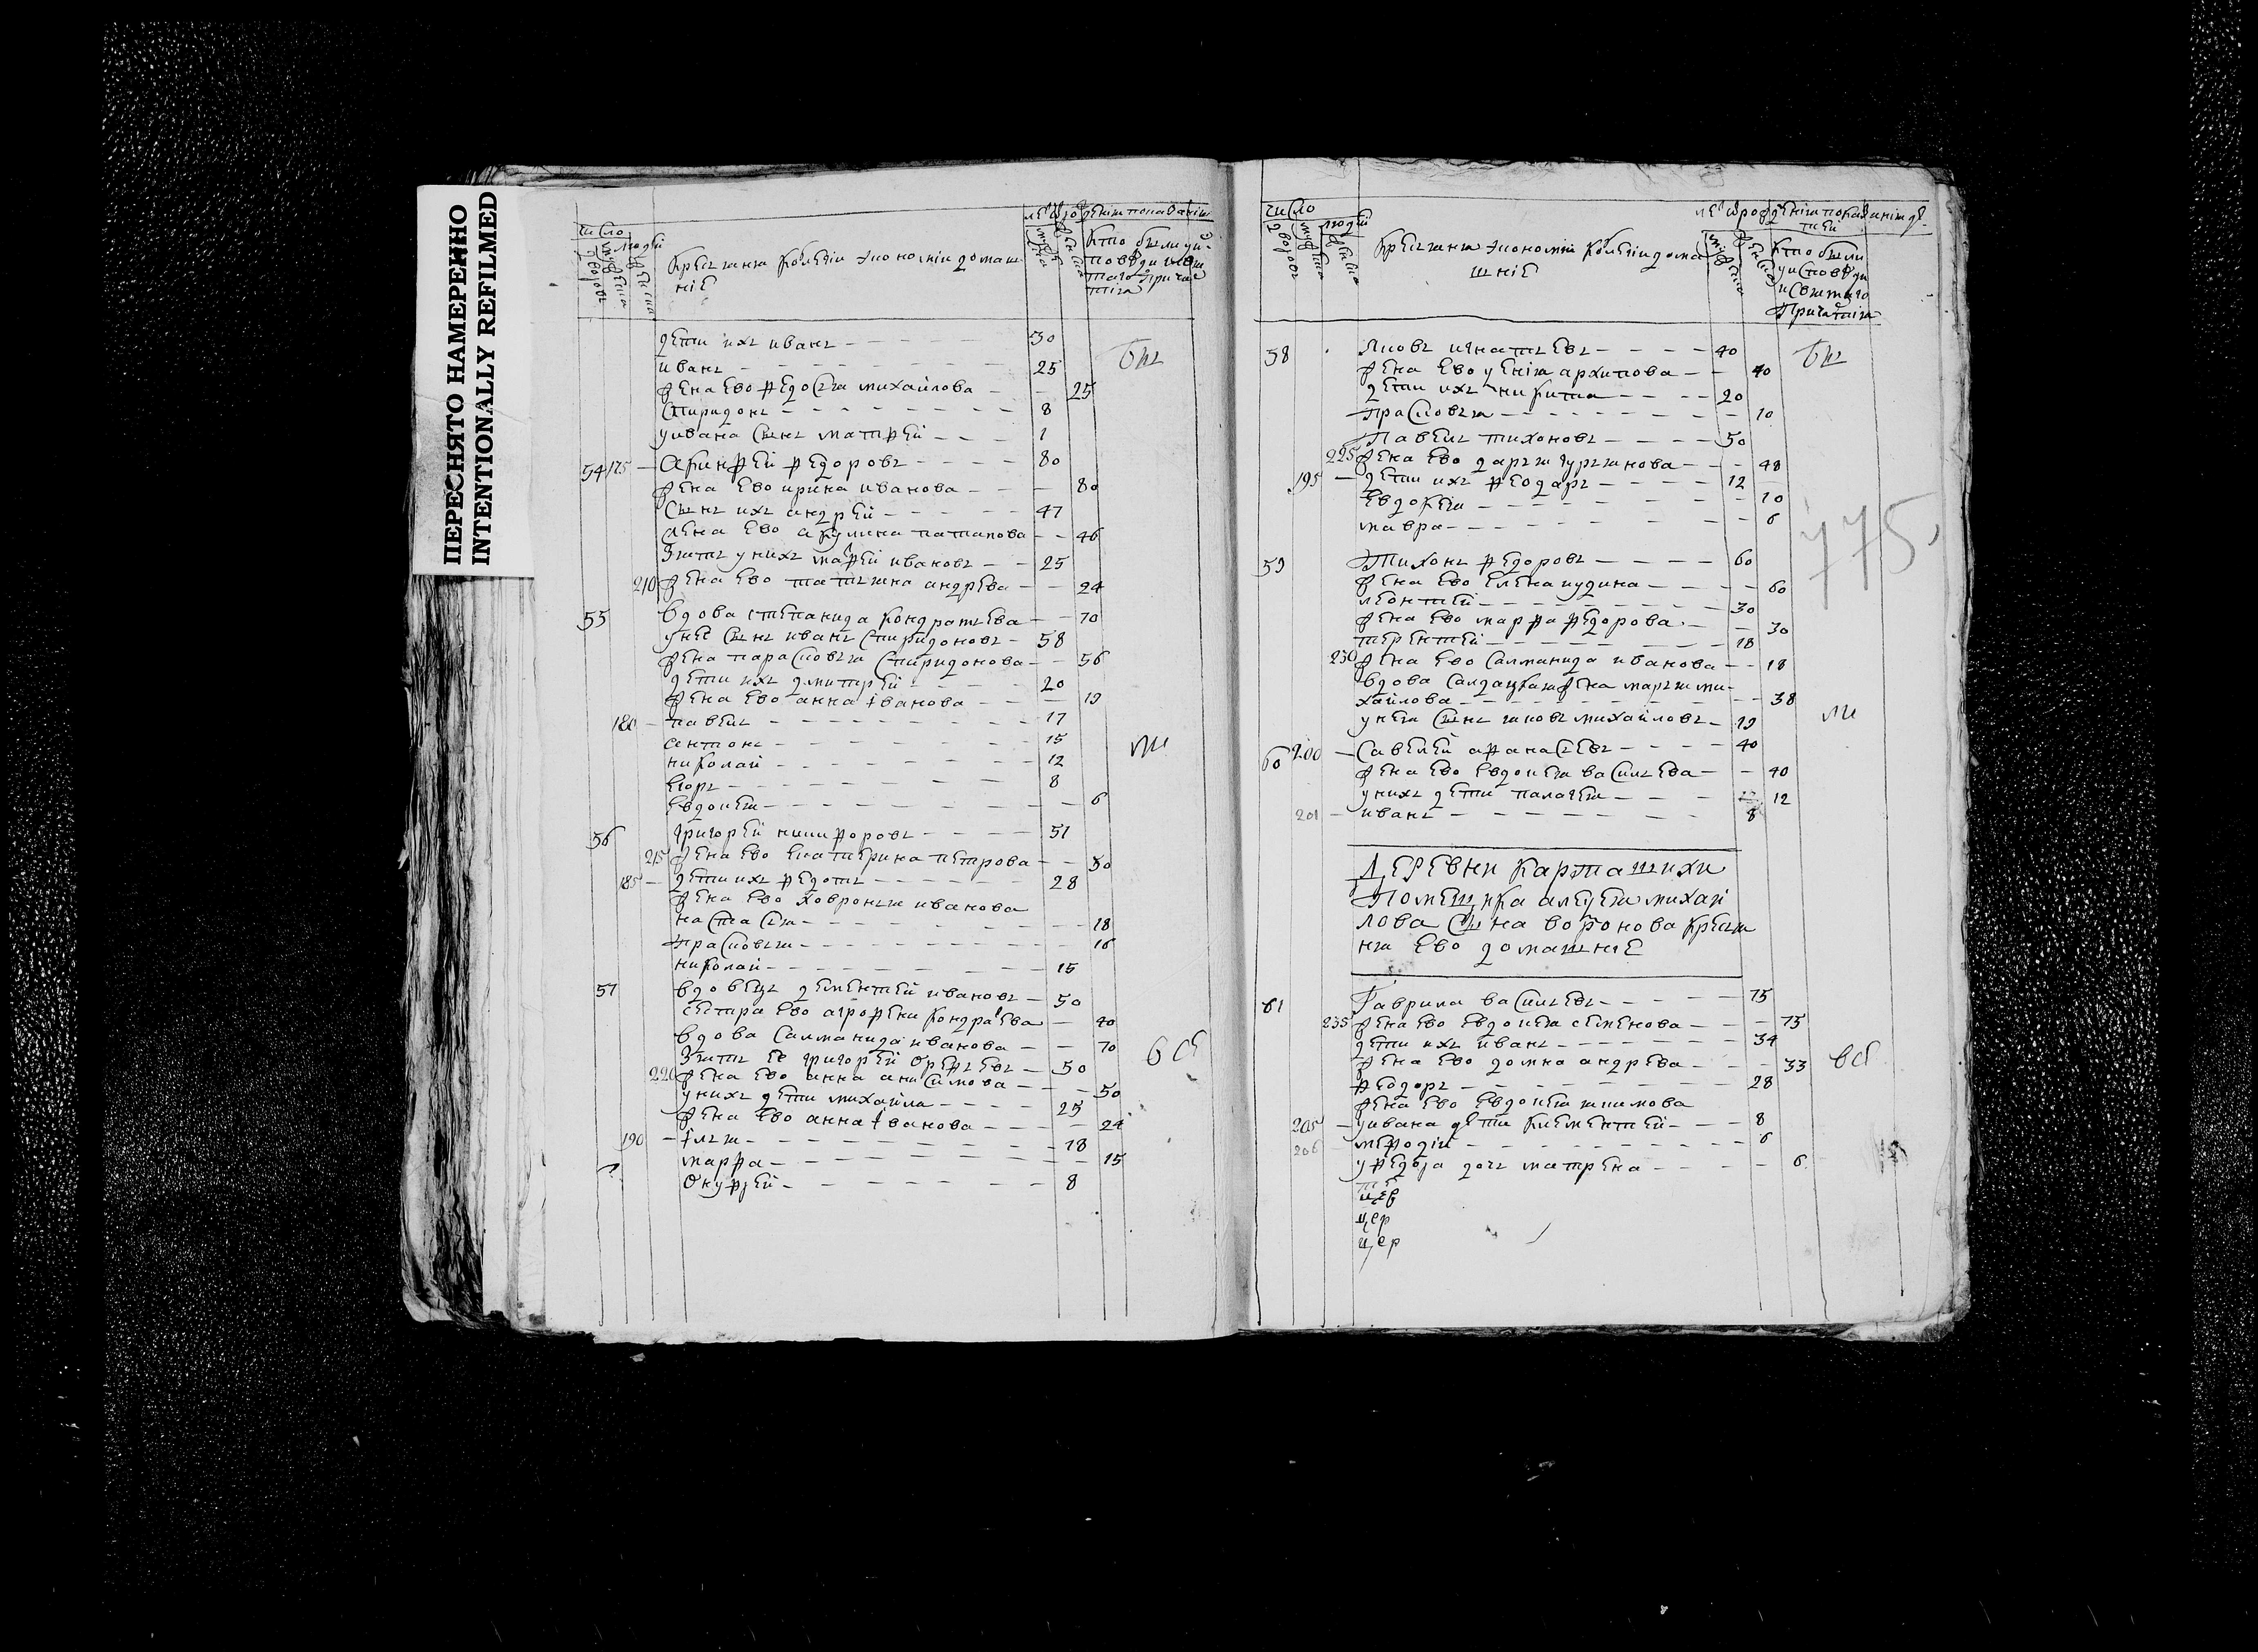 ПЕРЕСНЯТО НАМЕРЕННО
INTENTIONALLY REFILMED
число
людей
крестьяня колегіи экономіи домаш
ніе
кто были у и-
повѣди и свѧ
таго причас
тія
дети ихъ иванъ - 30
иванъ - 25
жена ево федосья михайлова - 25
спиридонъ - 8
у ивана сынъ матфей - 1
54 175 - Акинфей федоровъ - 80
жена ево ирина иванова - 80
сынъ ихъ андрей - 47
жена ево акулина патапова - 46
зять у нихъ матфей ивановъ - 25
210 жена ево татьяна андрева - 24
55 вдова степанида кондратьева - 70
у нее сынъ иванъ спиридоновъ - 58
жена парасковья спиридонова - 56
дети ихъ дмитрей - 20
жена ево анна іванова - 19
180 - павелъ - 17
антонъ - 15
николай - 12
егоръ - 8
евдокея - 6
56 григорей никифоровъ - 51
215 жена ево екатерина петрова - 50
185 - дети ихъ федотъ - 28
жена ево ховронья иванова
настасья - 18
прасковья - 16
николай - 15
57 вдовецъ дементей ивановъ - 50
сестра ево агрофена кондратева - 40
вдова саламанида иванова - 70
зять ее григорей - 50
220 жена ево анна анисимова - 50
у нихъ дети михайла - 25
жена ево анна іванова - 24
190 - ілья - 18
марфа - 15
Онуфрей - 8
бы
ли
всѣ
число
людей
крестьяня экономіи колегіи дома
шніе
кто были
у исповѣди
и святаго
причастія
58 Яковъ игнатьевъ - 40
жена ево ксенія архипова - 40
дети ихъ никита - 20
прасковья - 10
Павелъ тихоновъ - 50
225 жена ево дарья гурьянова - 48
195 - дети ихъ феодоръ - 12
евдокея - 10
мавра - 6
59 Тихонъ федоровъ - 60
жена ево елена иудина - 60
леонтей - 30
жена ево марфа федорова - 30
терентей - 18
230 жена ево салманида иванова - 18
вдова салдацкая жена марья ми-
хайлова - 38
у нея сынъ яковъ михайловъ - 19
60 200 - Савелей афанасьевъ - 40
жена ево евдокея васильева - 40
у нихъ дети палагея - 12
201 - иванъ - 8
775
Деревни карташихи
Помещика алексея михай
лова сына воронова крестья
ня ево домашніе
61 Гаврила васильевъ - 75
235 жена ево евдокея семенова - 75
дети ихъ иванъ - 34
жена ево домна андрева - 33
феодоръ - 28
жена ево евдокея акимова
205 - у ивана дети климентей - 8
206 мефодій - 6
у федора дочь матрена - 6
цер
цер
бы
ли
всѣ